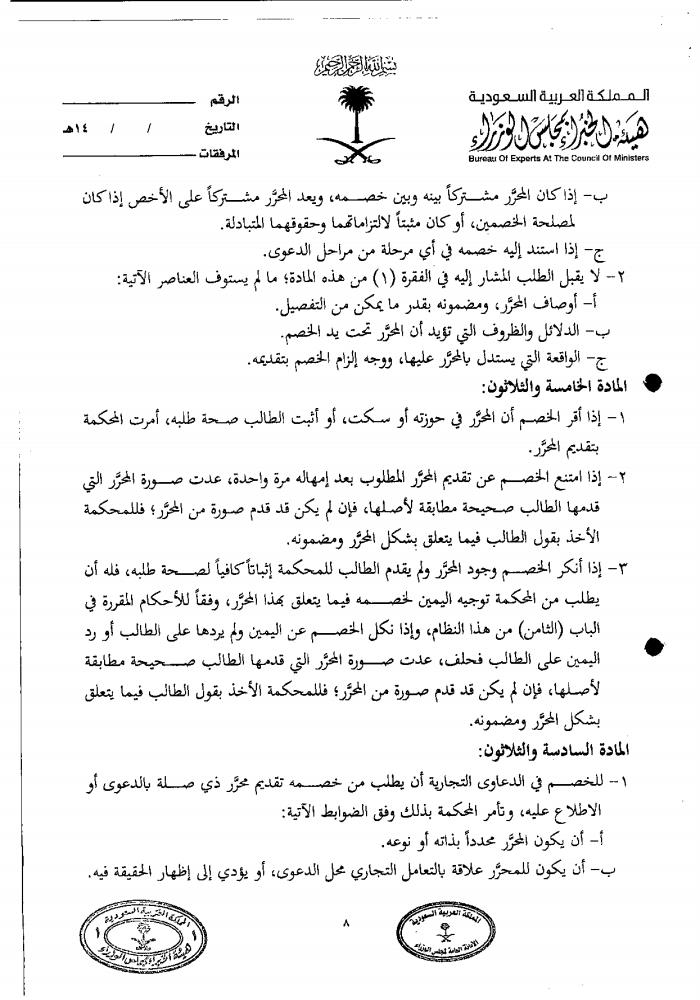 بسم الله الرحمن الرحيم
المملكة العربية السعودية
هيئة الخبراء بمجلس الوزراء
Bureau Of Experts At The Council Of Ministers
الرقم
التاريخ / / ١٤هـ
المرفقات
ب- إذا كان المحرَّر مشتركاً بينه وبين خصمه، ويعد المحرَّر مشتركاً على الأخص إذا كان
لمصلحة الخصمين، أو كان مثبتاً لالتزاماتهما وحقوقهما المتبادلة.
ج- إذا استند إليه خصمه في أي مرحلة من مراحل الدعوى.
٢- لا يقبل الطلب المشار إليه في الفقرة (١) من هذه المادة؛ ما لم يستوف العناصر الآتية:
أ- أوصاف المحرَّر، ومضمونه بقدر ما يمكن من التفصيل.
ب- الدلائل والظروف التي تؤيد أن المحرَّر تحت يد الخصم.
ج- الواقعة التي يستدل بالمحرَّر عليها، ووجه إلزام الخصم بتقديمه.
المادة الخامسة والثلاثون:
١- إذا أقر الخصم أن المحرَّر في حوزته أو سكت، أو أثبت الطالب صحة طلبه، أمرت المحكمة
بتقديم المحرَّر.
٢- إذا امتنع الخصم عن تقديم المحرَّر المطلوب بعد إمهاله مرة واحدة، عدت صورة المحرَّر التي
قدمها الطالب صحيحة مطابقة لأصلها، فإن لم يكن قد قدم صورة من المحرَّر؛ فللمحكمة
الأخذ بقول الطالب فيما يتعلق بشكل المحرَّر ومضمونه.
٣- إذا أنكر الخصم وجود المحرَّر ولم يقدم الطالب للمحكمة إثباتاً كافياً لصحة طلبه، فله أن
يطلب من المحكمة توجيه اليمين لخصمه فيما يتعلق بهذا المحرَّر، وفقاً للأحكام المقررة في
الباب (الثامن) من هذا النظام، وإذا نكل الخصم عن اليمين ولم يردها على الطالب أو رد
اليمين على الطالب فحلف، عدت صورة المحرَّر التي قدمها الطالب صحيحة مطابقة
لأصلها، فإن لم يكن قد قدم صورة من المحرَّر؛ فللمحكمة الأخذ بقول الطالب فيما يتعلق
بشكل المحرَّر ومضمونه.
المادة السادسة والثلاثون:
١- للخصم في الدعاوى التجارية أن يطلب من خصمه تقديم محرَّر ذي صلة بالدعوى أو
الاطلاع عليه، وتأمر المحكمة بذلك وفق الضوابط الآتية:
أ- أن يكون المحرَّر محدداً بذاته أو نوعه.
ب- أن يكون للمحرَّر علاقة بالتعامل التجاري محل الدعوى، أو يؤدي إلى إظهار الحقيقة فيه.
المملكة العربية السعودية
الأمانة العامة لمجلس الوزراء
٨
المملكة العربية السعودية
هيئة الخبراء بمجلس الوزراء